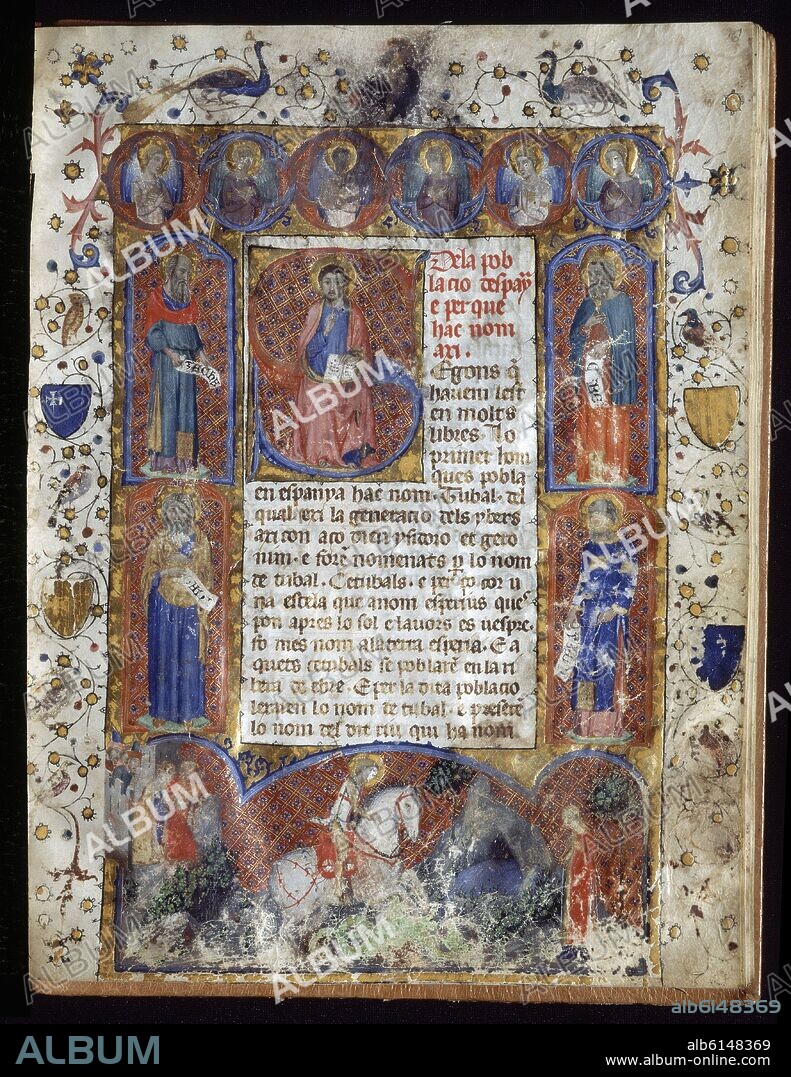 Dela pob
lacio despay̅
e per que
hac nom
axi.
Egons q̅
havem lest
en molts
libres. Lo
primer hom
ques pobla
en espanya hac nom. Tubal. del
qual exi la generacio dels ybers
axi con aço dien ysidoro et gero
nim. e fore̅ nomenats p lo nom
de tubal. Cetubals. e
na estela que a nom esperius ques
pon apres lo sol e lauors es vespre.
fo mes nom a la terra esperia. E a
quets cetubals se poblare̅ en la ri
bera de ebre. E per la dita poblacio
lexaren lo nom de tubal. e
lo nom del dit riu qui ha nom
ALBUM
alb6148369
alb6148369
www.album-online.com